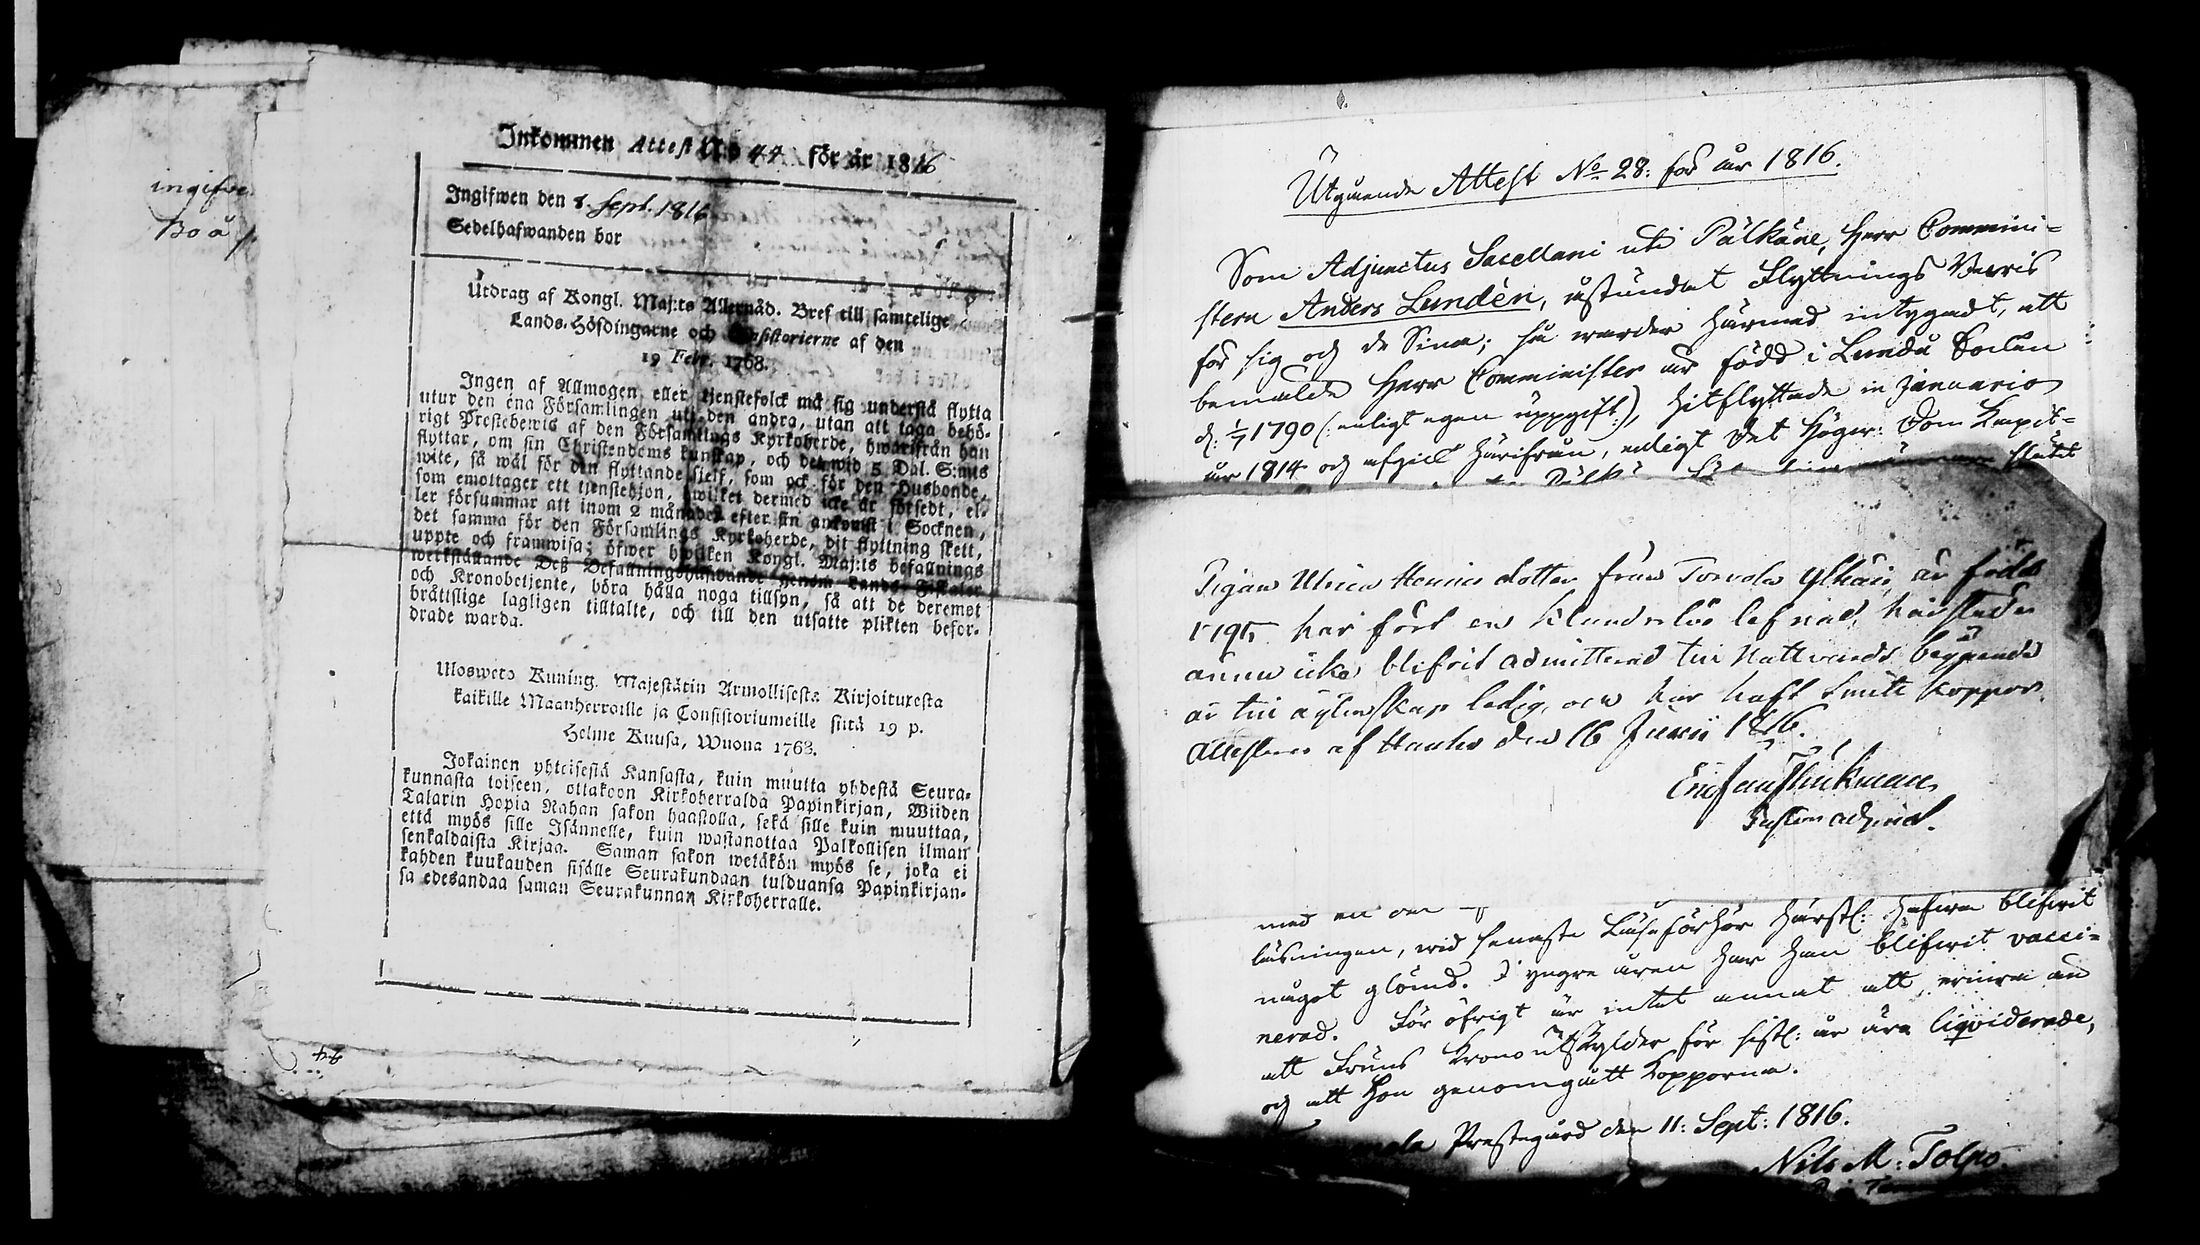 ingifve
Bo å
Inkommen Attest N:o 44 för år 1816
Ingifwen den 8. Sept. 1816
Sedelhafwanden bor
Utdrag af Kongl. Maj:ts Allernåd. Bref till samtelige
Lands-Höfdingarne och Consistorierne af den
19 Febr. 1768.
Ingen af Allmogen eller tjenstefolck må sig understå flytta
utur den ena Församlingen uti den andra, utan att taga behö-
rigt Prestebewis af den Församlings Kyrkoherde, hwarifrån han
flyttar, om sin Christendoms kunskap, och det wid 5 Dal. S:mts
wite, så wäl för den flyttande sielf, som ock för den Husbonde,
som emottager ett tjenstehjon, hwilket dermed icke är försedt, el-
ler försummar att inom 2 månader efter sin ankomst i Socknen,
det samma för den Församlings Kyrkoherde, dit flyttning skett,
uppte och framwisa; öfwer hwilken Kongl. Maj:ts befallnings
werkställande Deß Befallningshafwande genom Lands-Fiskaler
och Kronobetjente, böra hålla noga tillsyn, så att de deremot
bråttslige lagligen tilltalte, och till den utsatte plikten befor-
drade warda.
Uloswero Kuning. Majestätin Armollisesta Kirjoituxesta
kaikille Maanherroille ja Consistoriumeille siitä 19 p.
Helme Kuusa, Wuona 1768.
Jokainen yhteisestä Kansasta, kuin muutta yhdestä Seura-
kunnasta toiseen, ottakoon Kirkoherralda Papinkirjan, Wiiden
Talarin Hopia Rahan sakon haastolla, sekä sille kuin muuttaa,
että myös sille Isännelle, kuin wastanottaa Palkollisen ilman
senkaldaista Kirjaa. Saman sakon wetäkön myös se, joka ei
kahden kuukauden sisälle Seurakundaan tulduansa Papinkirjan-
sa edesandaa saman Seurakunnan Kirkoherralle.
Utgående Attest No 28: för år 1816.
Som Adjunctus Sacellani uti Pälkäne, Herr Commini-
stern Anders Lundén, åstundat Flyttnings Bewis
för sig och de Sina; så warder härmed intygadt, att
bemälde Herr Comminister är född i Lundå Socken
d: 1/7 1790 (: enligt egen uppgift:), hitflyttade in Januario
år 1814 och afgick härifrån, enligt det Högw: Dom Kapit-
Pigan Ulrica Henrics dotter från Torvola är född
har fört en klanderlös lefnad, härstädes
ännu icke blifvit admitterad till Nattvards begående
är till äktenskap ledig, och har haft Smitt koppor.
Attesteras af Hauho den 16 Junii 1816.
Pastors adjunct.
med en
läsningen, wid senaste Läseförhör härstl: hafwa blifwit
något glömd. I yngre åren har han blifwit vacci-
nerad. För öfrigt är intet annat att erinra än
att Fruns Krono utskylder för sistl: år äro liqviderade,
och att hon genomgått kopporna.
Prestegård den 11: Sept: 1816.
Nils M: Tolpo.